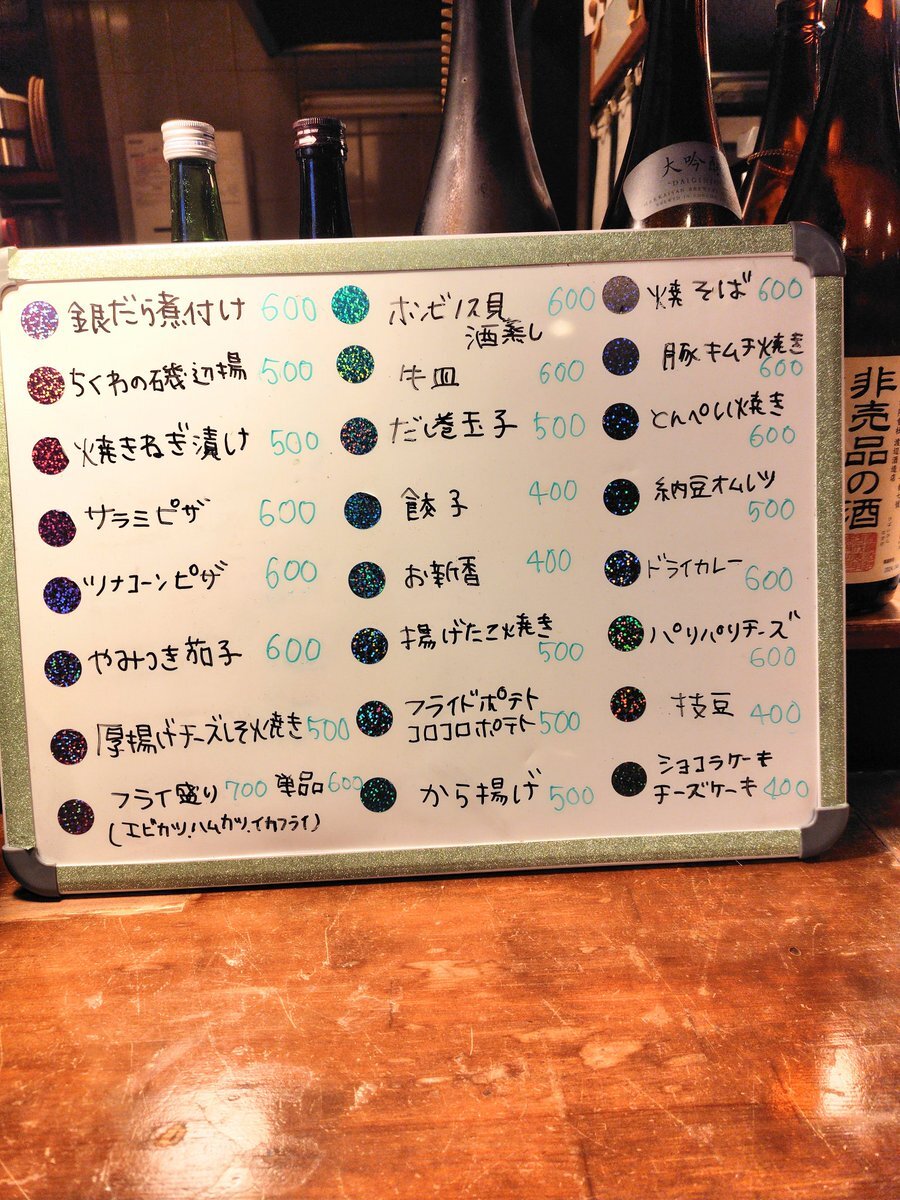 銀だら煮付け 600
ちくわの磯辺揚 500
焼きねぎ漬け 500
サラミピザ 600
ツナコーンピザ 600
やみつき茄子 600
厚揚げチーズしそ焼き 500
フライ盛り 700 単品 600
(エビカツ.ハムカツ.イカフライ)
ホンビノス貝 600
酒蒸し
牛皿 600
だし巻玉子 500
餃子 400
お新香 400
揚げたこ焼き
500
フライドポテト
コロコロポテト 500
から揚げ 500
焼そば 600
豚キムチ焼き
600
とんぺい焼き
600
納豆オムレツ
500
ドライカレー
600
パリパリチーズ
600
枝豆 400
ショコラケーキ
チーズケーキ 400
大吟醸
非売品の酒